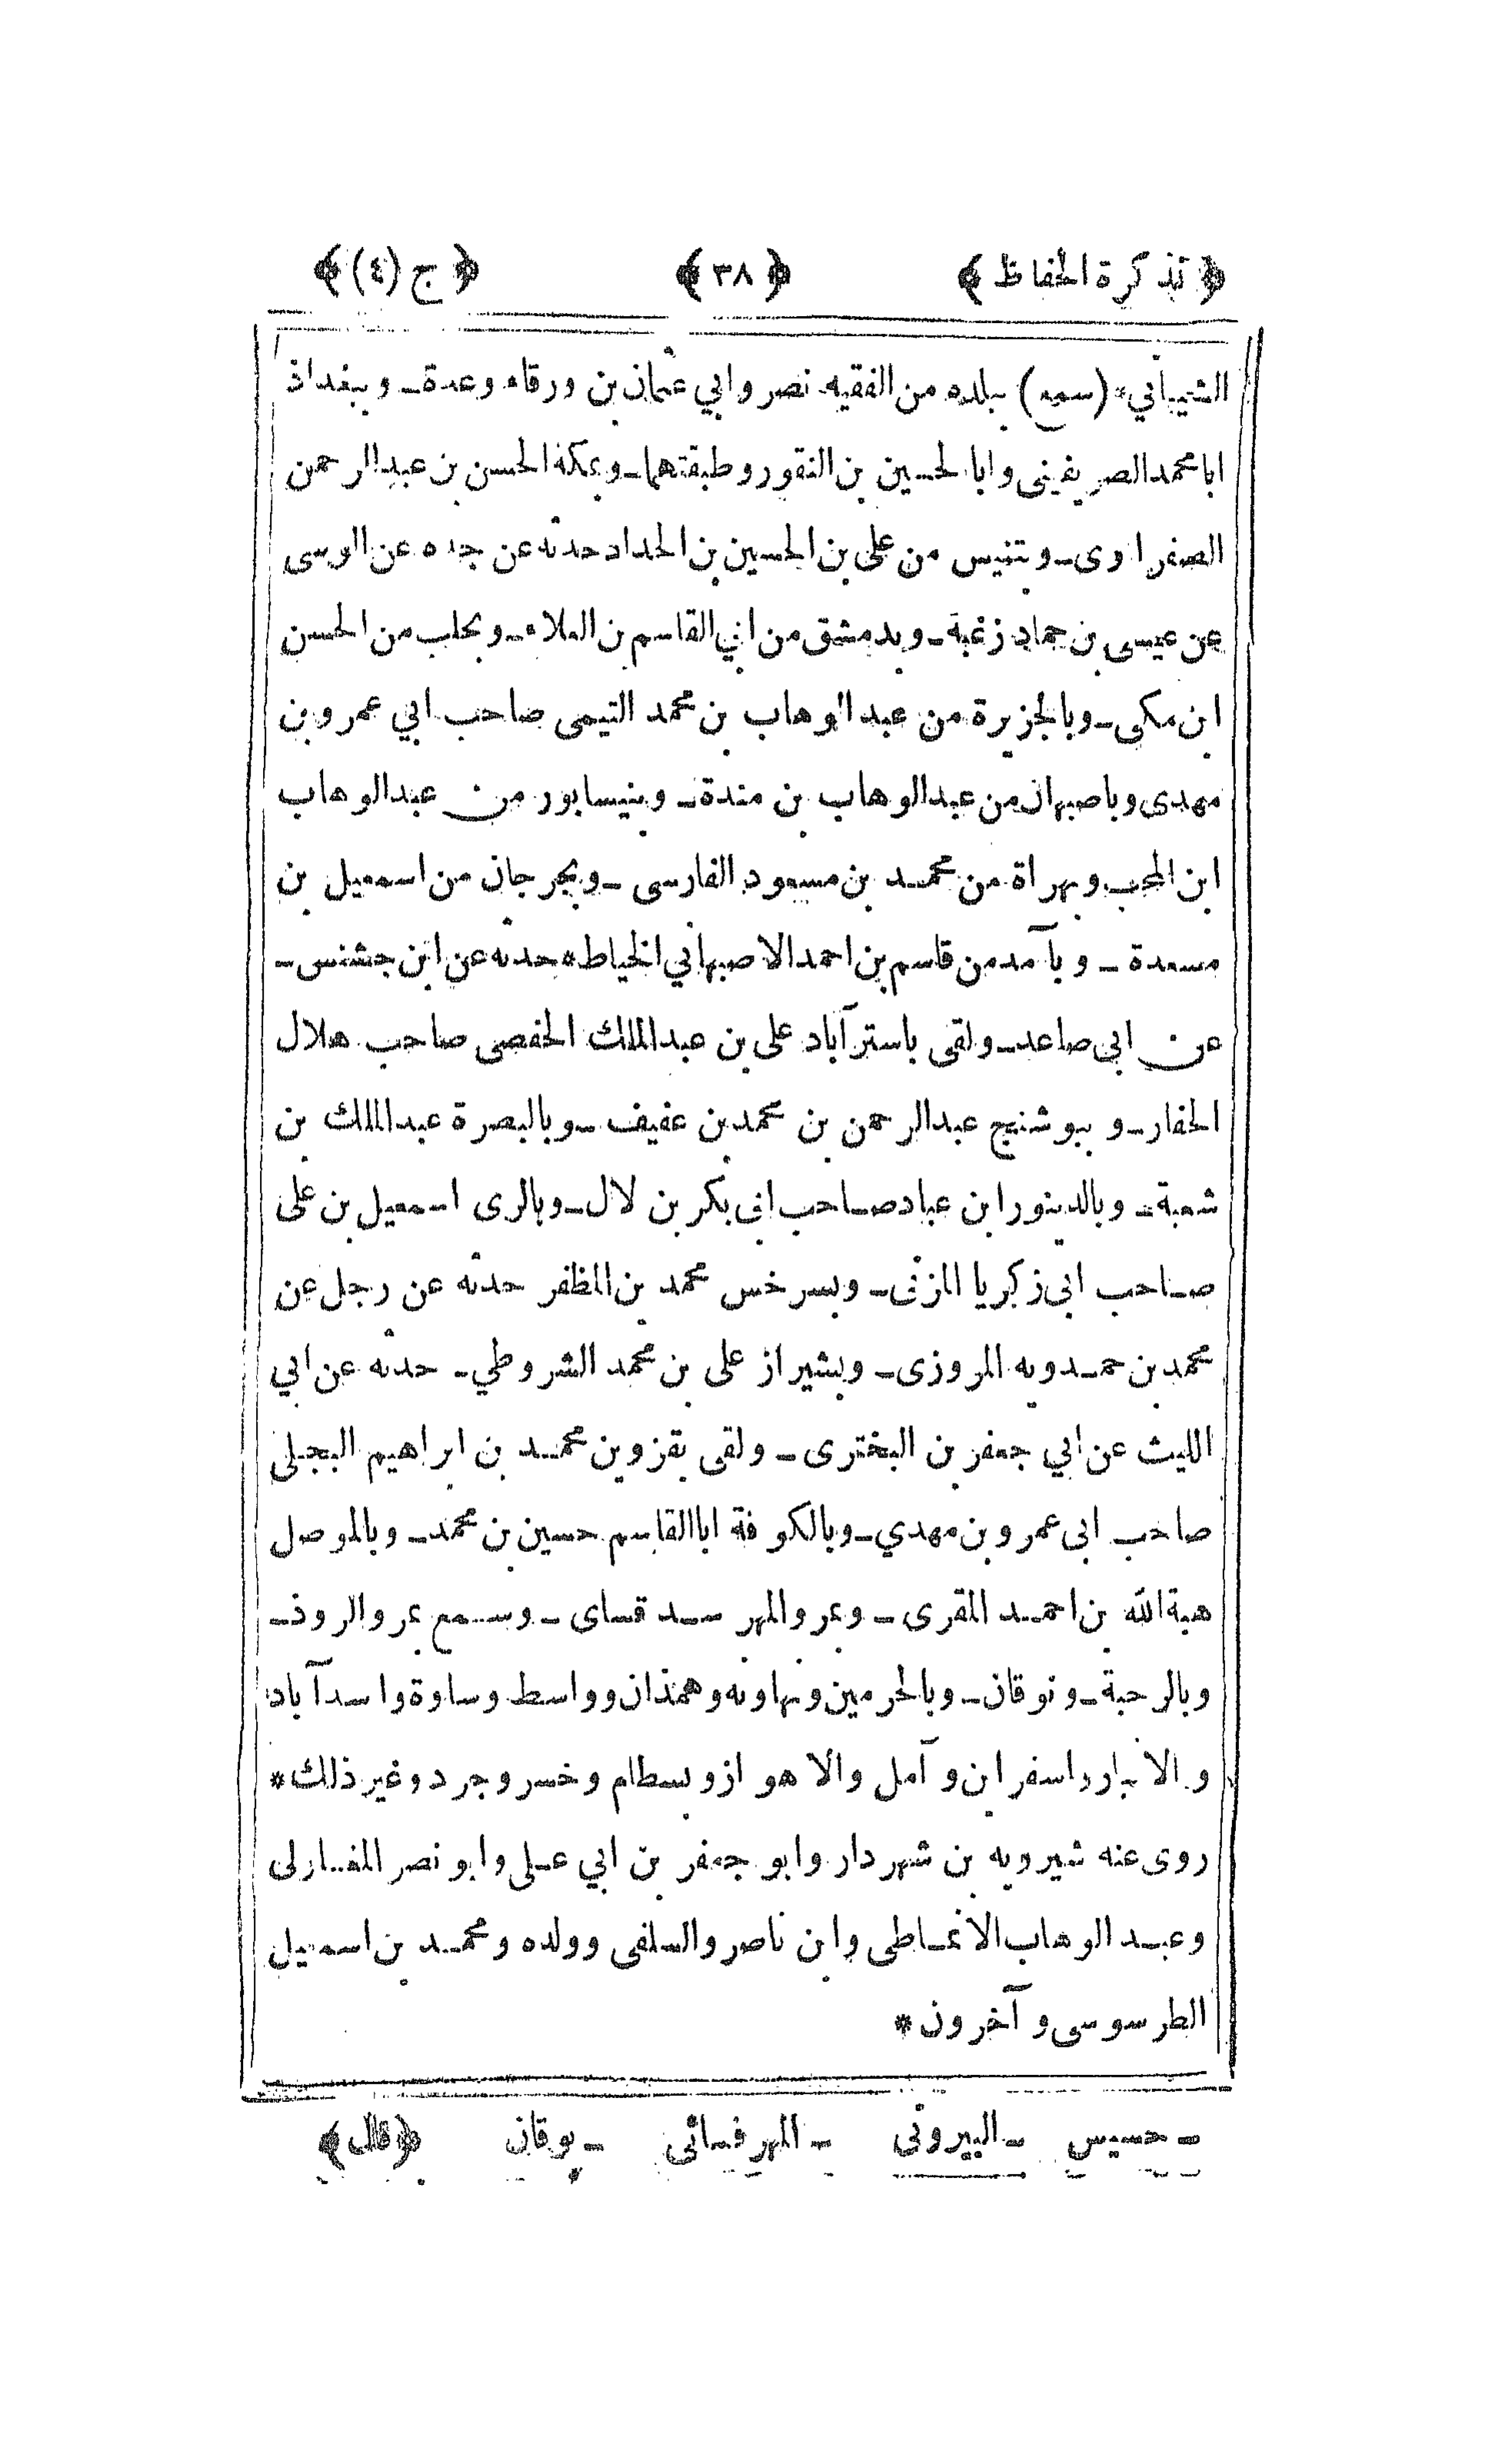 ﴿ تذكرة الحفاظ ﴾ ﴿ ٣٨ ﴾ ﴿ ج (٤) ﴾
الشيباني* (سمع) ببلده من الفقيه نصر وابي عثمان بن ورقاء وعدة ـ وببغداذ
ابا محمد الصريفيني وابا الحسين بن النقور وطبقتهما ـ وبمكة الحسن بن عبد الرحمن
الصفراوى ـ وبتنيس من على بن الحسين بن الحداد حدثه عن جده عن الوسى
عن عيسى بن حماد زغبة ـ وبدمشق من ابي القاسم بن العلاء ـ وبحلب من الحسن
ابن مكى ـ وبالجزيرة من عبد الوهاب بن محمد التيمى صاحب ابي عمر وبن
مهدى وباصبهان من عبد الوهاب بن مندة ـ وبنيسابور من عبد الوهاب
ابن المحب وبهراة من محمد بن مسعود الفارسى ـ وبجرجان من اسمعيل بن
مسعدة ـ وبآمد من قاسم بن احمد الاصبهاني الخياط حدثه عن ابن جشنس ـ
عن ابي صاعد ـ ولقى باسترآباد على بن عبد الملك الحفصى صاحب هلال
الحفار ـ وببوشنج عبد الرحمن بن محمد بن عفيف ـ وبالبصرة عبد الملك بن
شعبة ـ وبالدينور ابن عباد صاحب ابى بكر بن لال ـ وبالرى اسمعيل بن على
صاحب ابى زكريا المزنى ـ وبسرخس محمد بن المظفر حدثه عن رجل عن
محمد بن حمدويه المروزى ـ وبشيراز على بن محمد الشروطي ـ حدثه عن ابي
الليث عن ابي جعفر بن البخترى ـ ولقى بقزوين محمد بن ابراهيم البجلى
صاحب ابى عمر وبن مهدي ـ وبالكوفة ابا القاسم حسين بن محمد ـ وبالموصل
هبة الله بن احمد المقرى ـ وبمرو المهر سد قساى ـ وسمع بمرو الروذ ـ
وبالرحبة ـ ونوقان ـ وبالحرمين ونهاوند وهمذان وواسط وساوة واسدآباد
والانبار واسفراين وآمل والاهواز وبسطام وخسروجرد وغير ذلك *
روى عنه شيرويه بن شهردار وابو جعفر بن ابي على وابو نصر الغازى
وعبد الوهاب الانماطى وابن ناصر والسلفى وولده ومحمد بن اسمعيل
الطرسوسى وآخرون *
ـ حسيس ـ البيرونى ـ المهرفسائى ـ بوقان ﴿ قال ﴾